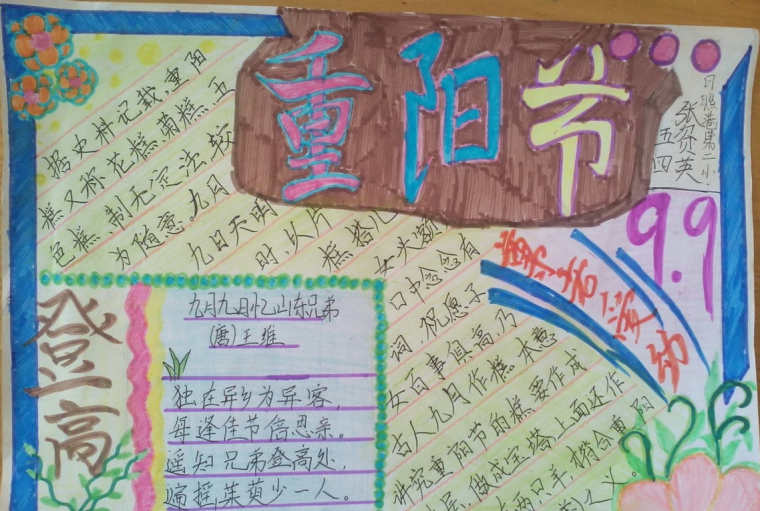 重阳节
日照港第二小
张贺英
五四
9.9
据史料记载,重阳
糕又称花糕、菊糕、五
色糕,制无定法,较
为随意。九月
九日天明
时,以片
糕搭儿
女头额,
口中念念有
词,祝愿子
女百事俱高,乃
古人九月作糕本意
讲究重阳节的糕要作成
九层,做成宝塔,上面还作
两只羊,符合重阳
之义。
登高
九月九日忆山东兄弟
(唐)王维
独在异乡为异客,
每逢佳节倍思亲。
遥知兄弟登高处,
遍摇茱萸少一人。